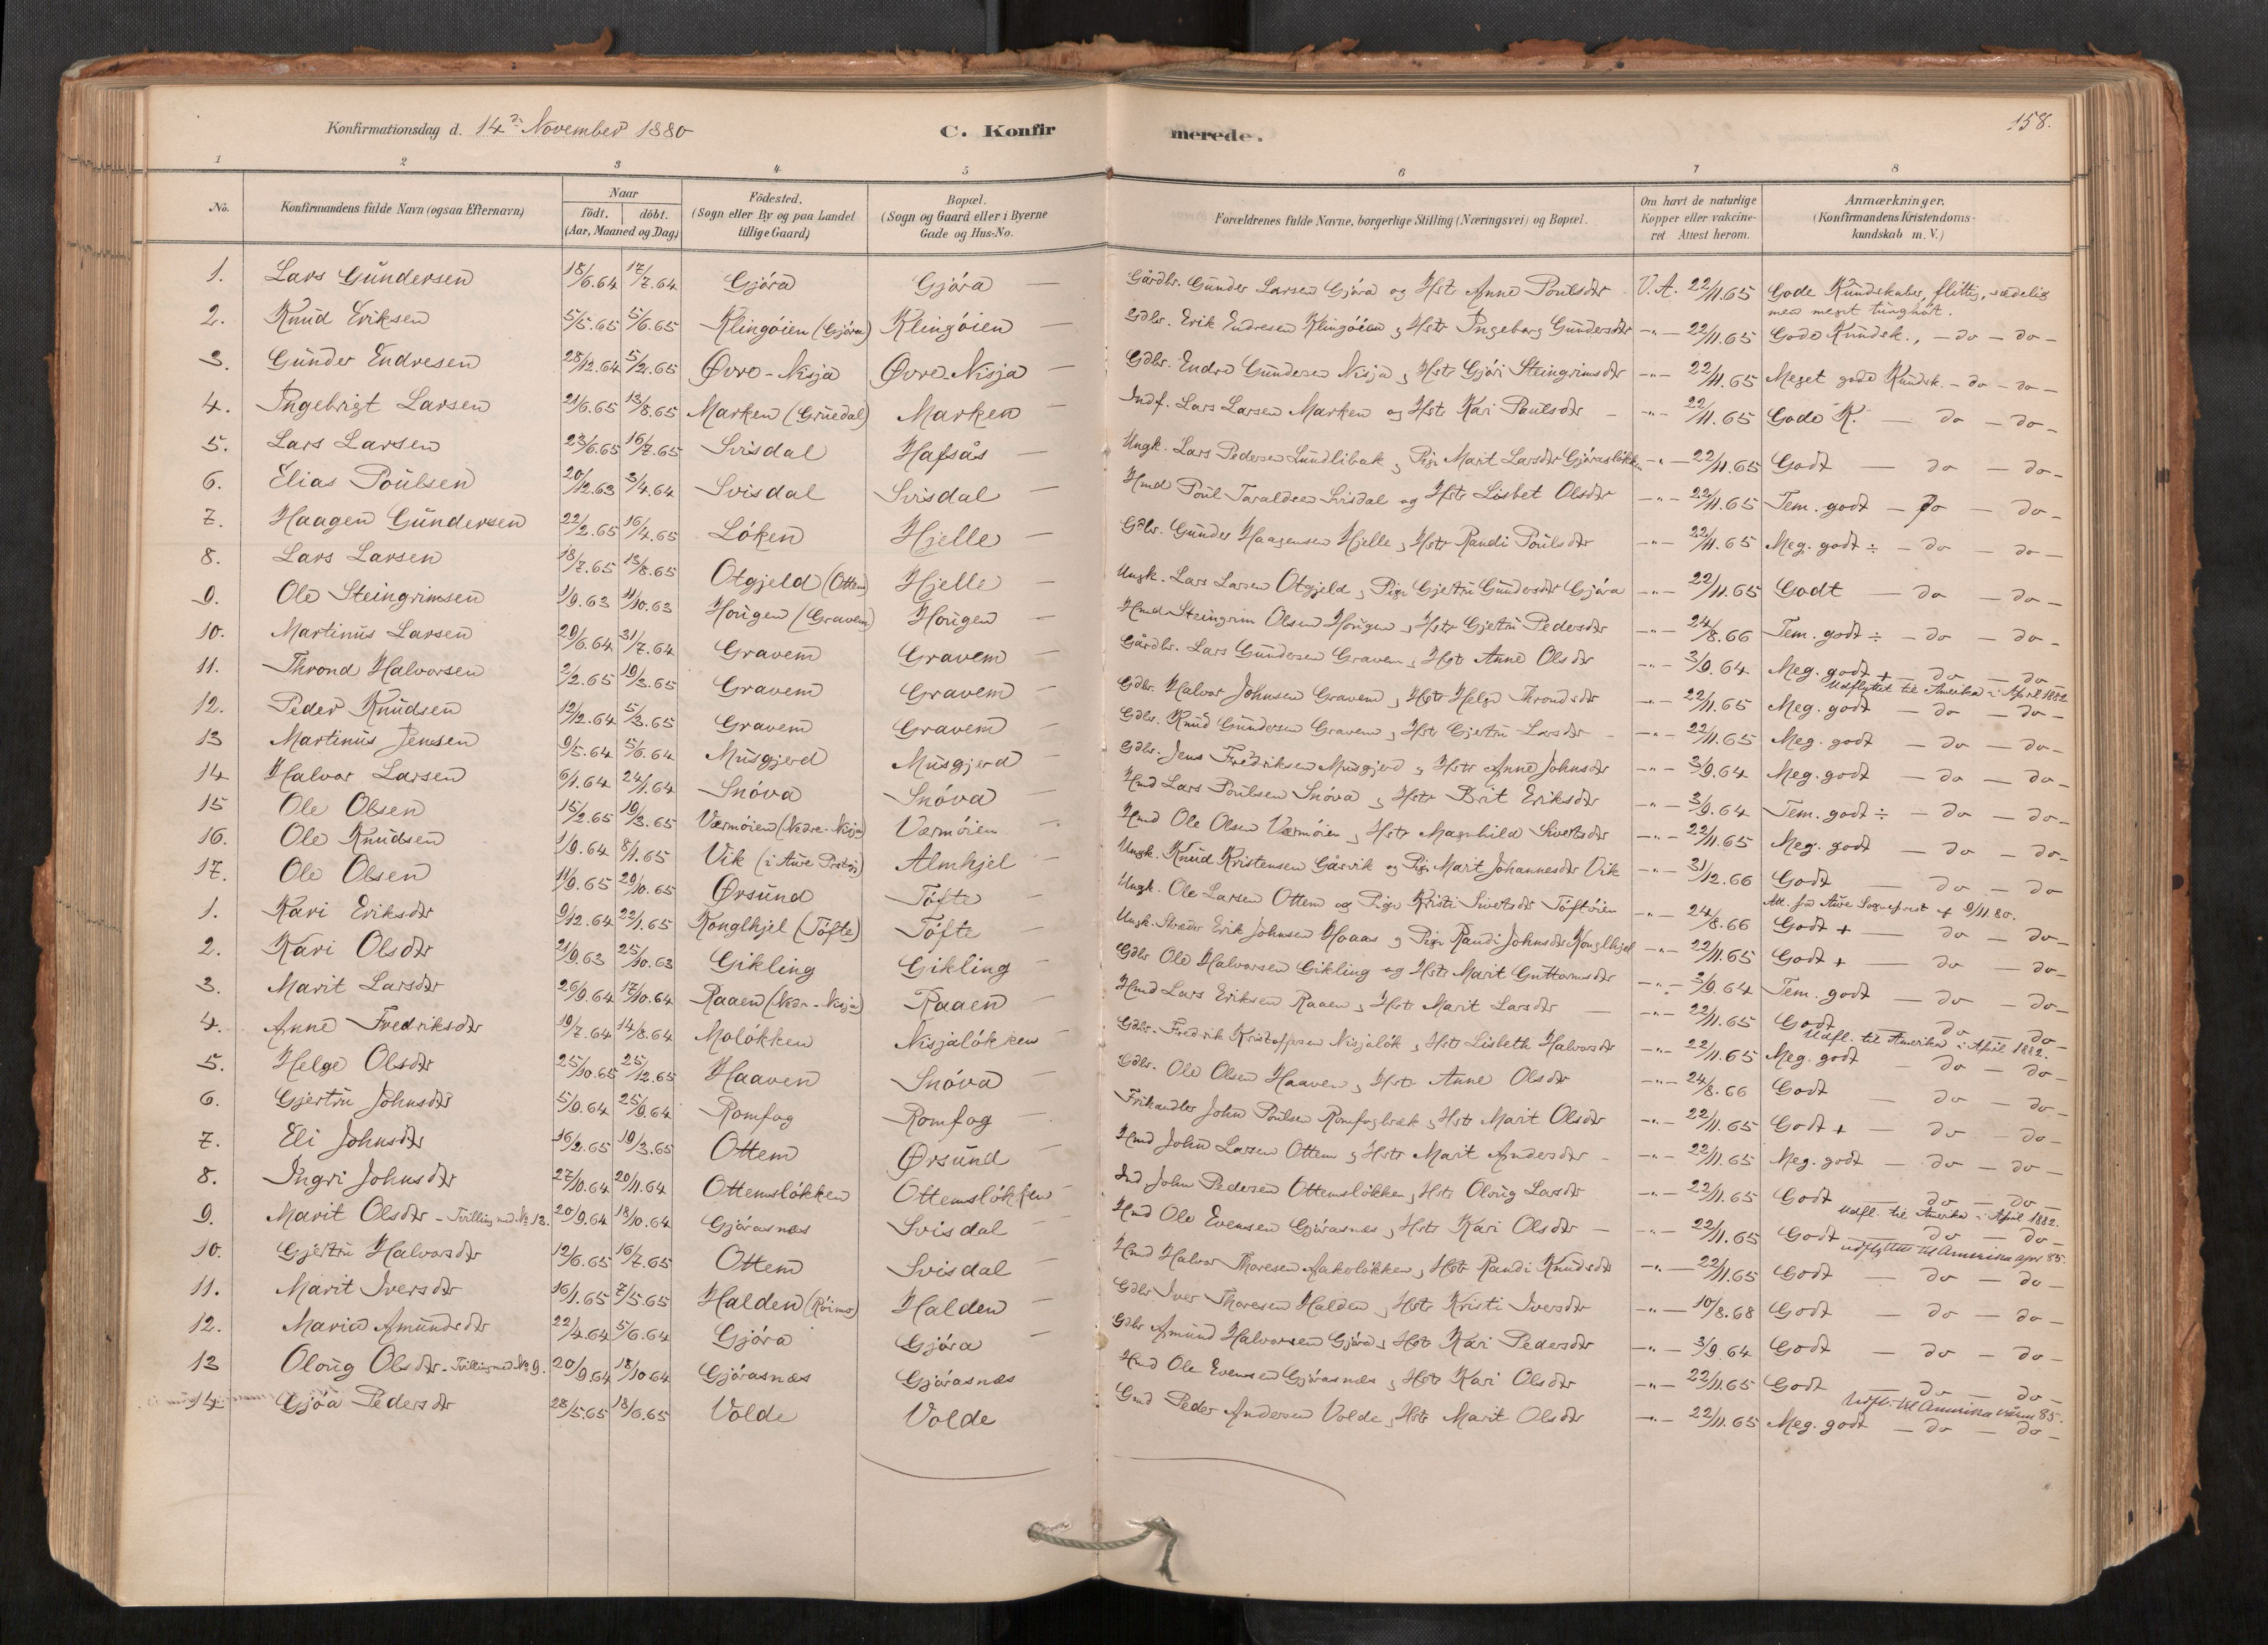 158.
Konfirmationsdag d. 14de November 1880 C. Konfirmerede.
1 2 3 4 5 6 7 8
No. Konfirmandens fulde Navn (ogsaa Efternavn) Naar födt. döbt. (Aar, Maaned og Dag) Födested. (Sogn eller By og paa Landet tillige Gaard) Bopæl. (Sogn og Gaard eller i Byerne Gade og Hus-No. Forældrenes fulde Navne, borgerlige Stilling (Næringsvei) og Bopæl. Om havt de naturlige Kopper eller vakcineret Attest herom. Anmærkninger. (Konfirmandens Kristendomskundskab m. V.)
1. Lars Gundersen 18/6.64 17/7.64 Gjöra Gjöra — Gårdbr. Gunder Larsen Gjöra og Hst Anne Poulsdtr V.A. 22/11.65 Gode Kundskaber, flittig, sædelig men meget tunghört.
2. Knud Eriksen 5/5.65 5/6.65 Klingöien (Gjöra) Klingöien — Gdbr. Erik Endresen Klingöien og Hstr Ingeborg Gundersdtr -"- 22/11.65 Gode Kundsk., — do — do —
3. Gunder Endresen 28/12.64 5/2.65 Övre-Nisja Övre-Nisja — Gdbr. Endre Gundersen Nisja og Hstr Gjöri Steingrimsdtr -"- 22/11.65 Meget gode Kundsk. — do — do —
4. Ingebrigt Larsen 21/6.65 13/8.65 Marken (Gruedal) Marken — Indf. Lars Larsen Marken og Hstr Kari Poulsdtr — -"- 22/11.65 Gode K. — do — do —
5. Lars Larsen 23/6.65 16/7.65 Svisdal Hafsås — Ungk. Lars Pedersen Lundlibak og Pige Marit Larsdtr Gjöraslökken -"- 22/11.65 Godt — do — do —
6. Elias Poulsen 20/12.63 3/4.64 Svisdal Svisdal — Hmd Poul Taraldsen Svisdal og Hstr Lisbet Olsdtr -"- 22/11.65 Tem. godt — do — do —
7. Haagen Gundersen 22/2.65 16/4.65 Löken Hjelle — Gdbr. Gunder Haagensen Hjelle og Hstr Randi Poulsdtr -"- 22/11.65 Meg. godt ÷ — do — do —
8. Lars Larsen 18/7.65 13/8.65 Otgjeld (Ottem) Hjelle — Ungk. Lars Larsen Otgjeld og Pige Gjertru Gundersdtr Gjöra -"- 22/11.65 Godt — do — do —
9. Ole Steingrimsen 1/9.63 11/10.63 Hougen (Gravem) Hougen — Hmd Steingrim Olsen Hougen og Hstr Gjertru Pedersdtr -"- 24/8.66 Tem. godt ÷ — do — do —
10. Martinus Larsen 29/6.64 31/7.64 Gravem Gravem — Gårdbr. Lars Gundersen Gravem og Hstr Anne Olsdtr -"- 3/9.64 Meg. godt + — do — do — Udflyttet til Amerika i April 1882.
11. Thrond Halvorsen 2/2.65 19/3.65 Gravem Gravem — Gdbr. Halvor Johnsen Gravem og Hstr Helge Throndsdtr -"- 22/11.65 Meg. godt — do — do —
12. Peder Knudsen 12/12.64 5/3.65 Gravem Gravem — Gdbr. Knud Gundersen Gravem og Hstr Gjertru Larsdtr — -"- 22/11.65 Meg. godt — do — do —
13 Martinus Jensen 9/5.64 5/6.64 Musgjerd Musgjerd — Gdbr. Jens Fredriksen Musgjerd og Hstr Anne Johnsdtr -"- 3/9.64 Meg. godt — do — do —
14 Halvor Larsen 6/1.64 24/1.64 Snöva Snöva — Hmd Lars Poulsen Snöva og Hstr Brit Eriksdtr -"- 3/9.64 Tem. godt ÷ — do — do —
15 Ole Olsen 15/2.65 19/3.65 Værmöien (Nedre-Nisja) Værmöien — Hmd Ole Olsen Værmöien og Hstr Magnhild Sivertsdtr -"- 22/11.65 Meg. godt — do — do —
16. Ole Knudsen 1/9.64 8/1.65 Vik (i Aure Prstgj) Almhjel — Ungk. Knud Kristensen Gåsvik og Pige Marit Johannesdtr Vik -"- 31/12.66 Godt — do — do Att. fra Aure Sogneprest af 9/11.80.
17. Ole Olsen 11/9.65 29/10.65 Örsund Töfte — Ungk. Ole Larsen Ottem og Pige Kristi Sivertsdtr Töftöien -"- 24/8.66 Godt + — do — do —
1. Kari Eriksdtr 9/12.64 22/1.65 Konglhjel (Töfte) Töfte — Ungk. Skræder Erik Johnsen Hoaas og Pige Randi Johnsdtr Konglhjel -"- 22/11.65 Godt + — do — do —
2. Kari Olsdtr 21/9.63 25/10.63 Gikling Gikling — Gdbr Ole Halvorsen Gikling og Hstr Marit Guttormsdtr -"- 3/9.64 Tem. godt — do — do —
3. Marit Larsdtr 26/9.64 17/10.64 Raaen (Nedr.-Nisja) Raaen — Hmd Lars Eriksen Raaen og Hstr Marit Larsdtr — -"- 22/11.65 Godt — do — do — Udfl. til Amerika i April 1882.
4. Anne Fredriksdtr 19/7.64 14/8.64 Molökken Nisjalökken Gdbr. Fredrik Kristoffersen Nisjalök og Hstr Lisbeth Halvorsdtr -"- 22/11.65 Meg. godt — do — do —
5. Helge Olsdtr 25/10.65 25/12.65 Haaven Snöva — Gdbr. Ole Olsen Haaven og Hstr Anne Olsdtr -"- 24/8.66 Godt — do — do —
6. Gjertru Johnsdtr 5/9.64 25/9.64 Romfog Romfog — Frihandler John Poulsen Romfogbæk og Hstr Marit Olsdtr -"- 22/11.65 Godt + — do — do —
7. Eli Johnsdtr 16/2.65 19/3.65 Ottem Örsund — Hmd John Larsen Ottem og Hstr Marit Andersdtr — -"- 22/11.65 Meg. godt — do — do —
8. Ingri Johnsdtr 27/10.64 20/11.64 Ottemslökken Ottemslökken — Ind John Pedersen Ottemslökken og Hstr Oloug Larsdtr -"- 22/11.65 Godt — do — do — Udfl. til Amerika i April 1882.
9. Marit Olsdtr - Tvilling med No 13. 20/9.64 18/10.64 Gjörasnæs Svisdal — Hmd Ole Evensen Gjörasnæs og Hstr Kari Olsdtr — -"- 22/11.65 Godt — do — do — udflyttet til Amerika apr 85.
10. Gjertru Halvorsdtr 12/6.65 16/7.65 Ottem Svisdal — Hmd Halvor Thoresen Aakerlökken og Hstr Randi Knudsdtr -"- 22/11.65 Godt — do — do —
11. Marit Iversdtr 16/1.65 7/5.65 Halden (Röimo) Halden — Gdbr Iver Thoresen Halden og Hstr Kristi Iversdtr -"- 10/8.68 Godt — do — do —
12. Maria Amundsdtr 22/4.64 5/6.64 Gjöra Gjöra — Gdbr Amund Halvorsen Gjöra og Hstr Kari Pedersdtr -"- 3/9.64 Godt — do — do —
13 Oloug Olsdtr - Tvilling med No 9. 20/9.64 18/10.64 Gjörasnæs Gjörasnæs Hmd Ole Evensen Gjörasnæs og Hstr Kari Olsdtr -"- 22/11.65 Godt — do — do — Udfl. til Amerika våren 85.
14. Gjöa Pedersdtr 28/5.65 18/6.65 Volde Volde Gmd Peder Andersen Volde og Hstr Marit Olsdtr -"- 22/11.65 Meg. godt — do — do —